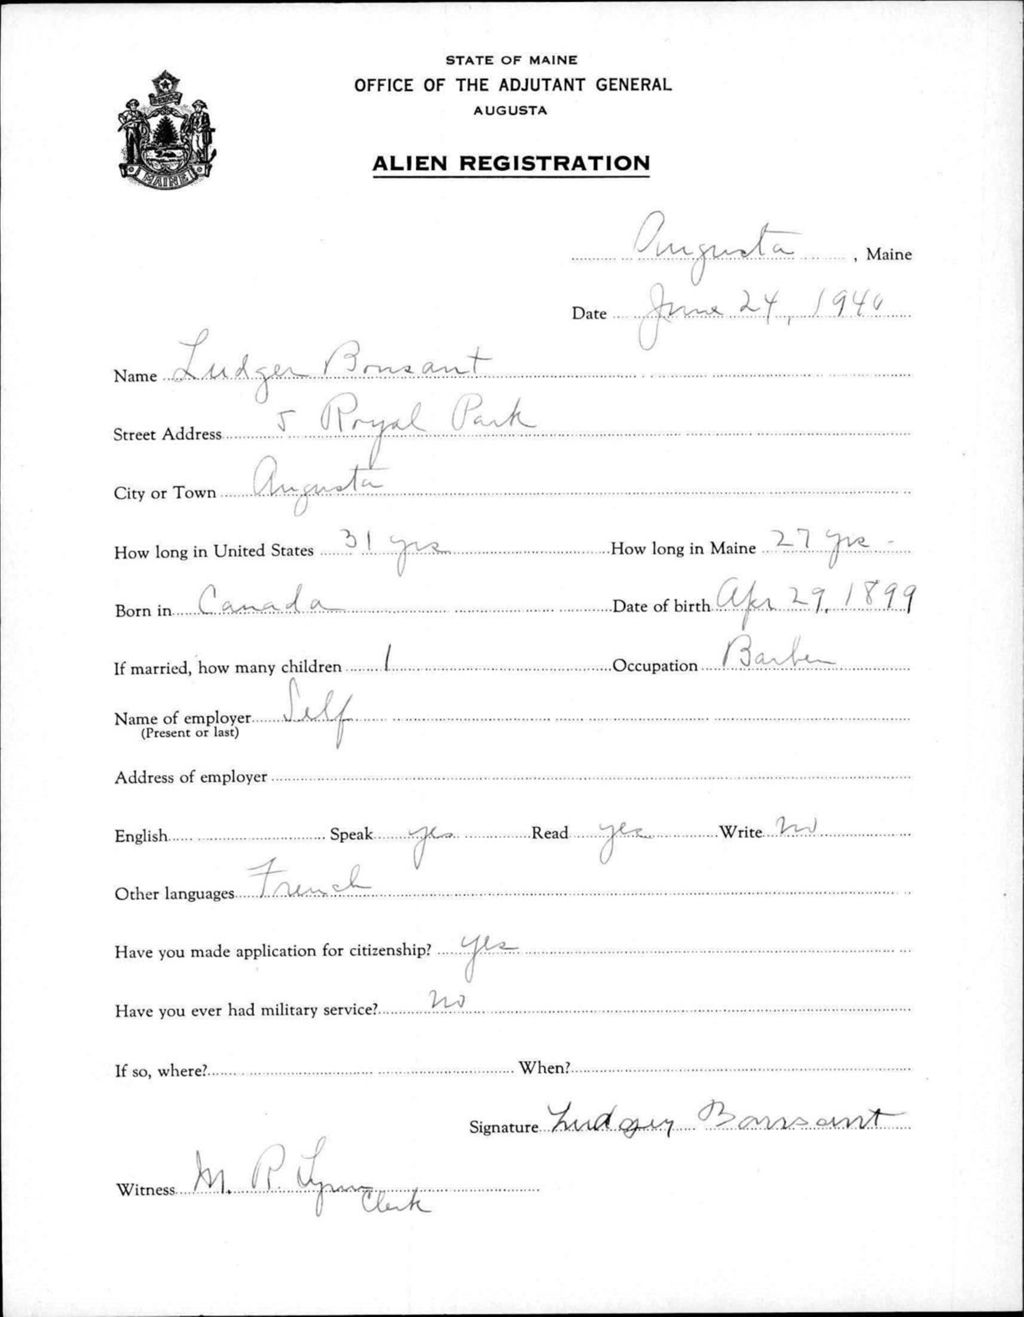 STATE OF MAINE
OFFICE OF THE ADJUTANT GENERAL
AUGUSTA
MAINE
ALIEN REGISTRATION
Augusta, Maine
Date June 24, 1940
Name Ludger Bonsant
Street Address 5 Royal Park
City or Town Augusta
How long in United States 31 yrs How long in Maine 27 yrs -
Born in Canada Date of birth Apr 29, 1899
If married, how many children 1 Occupation Barber
Name of employer Self
(Present or last)
Address of employer
English Speak yes Read yes Write no
Other languages French
Have you made application for citizenship? yes
Have you ever had military service? no
If so, where? When?
Signature Ludger Bonsant
Witness M. R. Lynn
Clerk